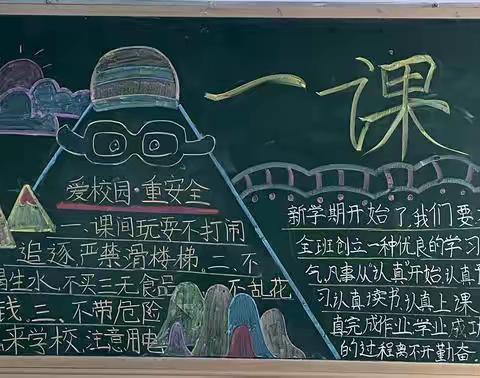 一课
爱校园·重安全
一、课间玩耍不打闹
追逐,严禁滑楼梯。二、不
喝生水,不买三无食品 不乱花
钱。三、不带危险
来学校,注意用电
新学期开始了,我们要
全班创立一种优良的学习
气,凡事从“认真”开始,认真
习,认真读书,认真上课
真完成作业,学业成功
的过程离不开勤奋。